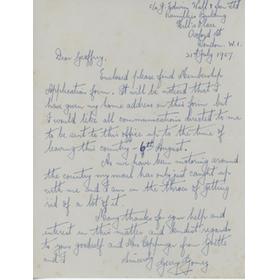 c/o J. Edwin Hall & Son Ltd
Building
Place
Oxford St
London. W.1.
21st July 1957
Dear Geoffrey,
Enclosed please find Membership
Application form. It will be noticed that I
have given my home address on this form but
I would like all communications directed to me
to be sent to this office up to the time of
leaving this country in 6th August.
As we have been motoring around
the country my mail has only just caught up
with me and I am in the throes of getting
rid of a lot of it.
Many thanks for your help and
interest in this matter and kindest regards
to your goodself and Mrs Copinger from
and I
Sincerely Gerry Gomez